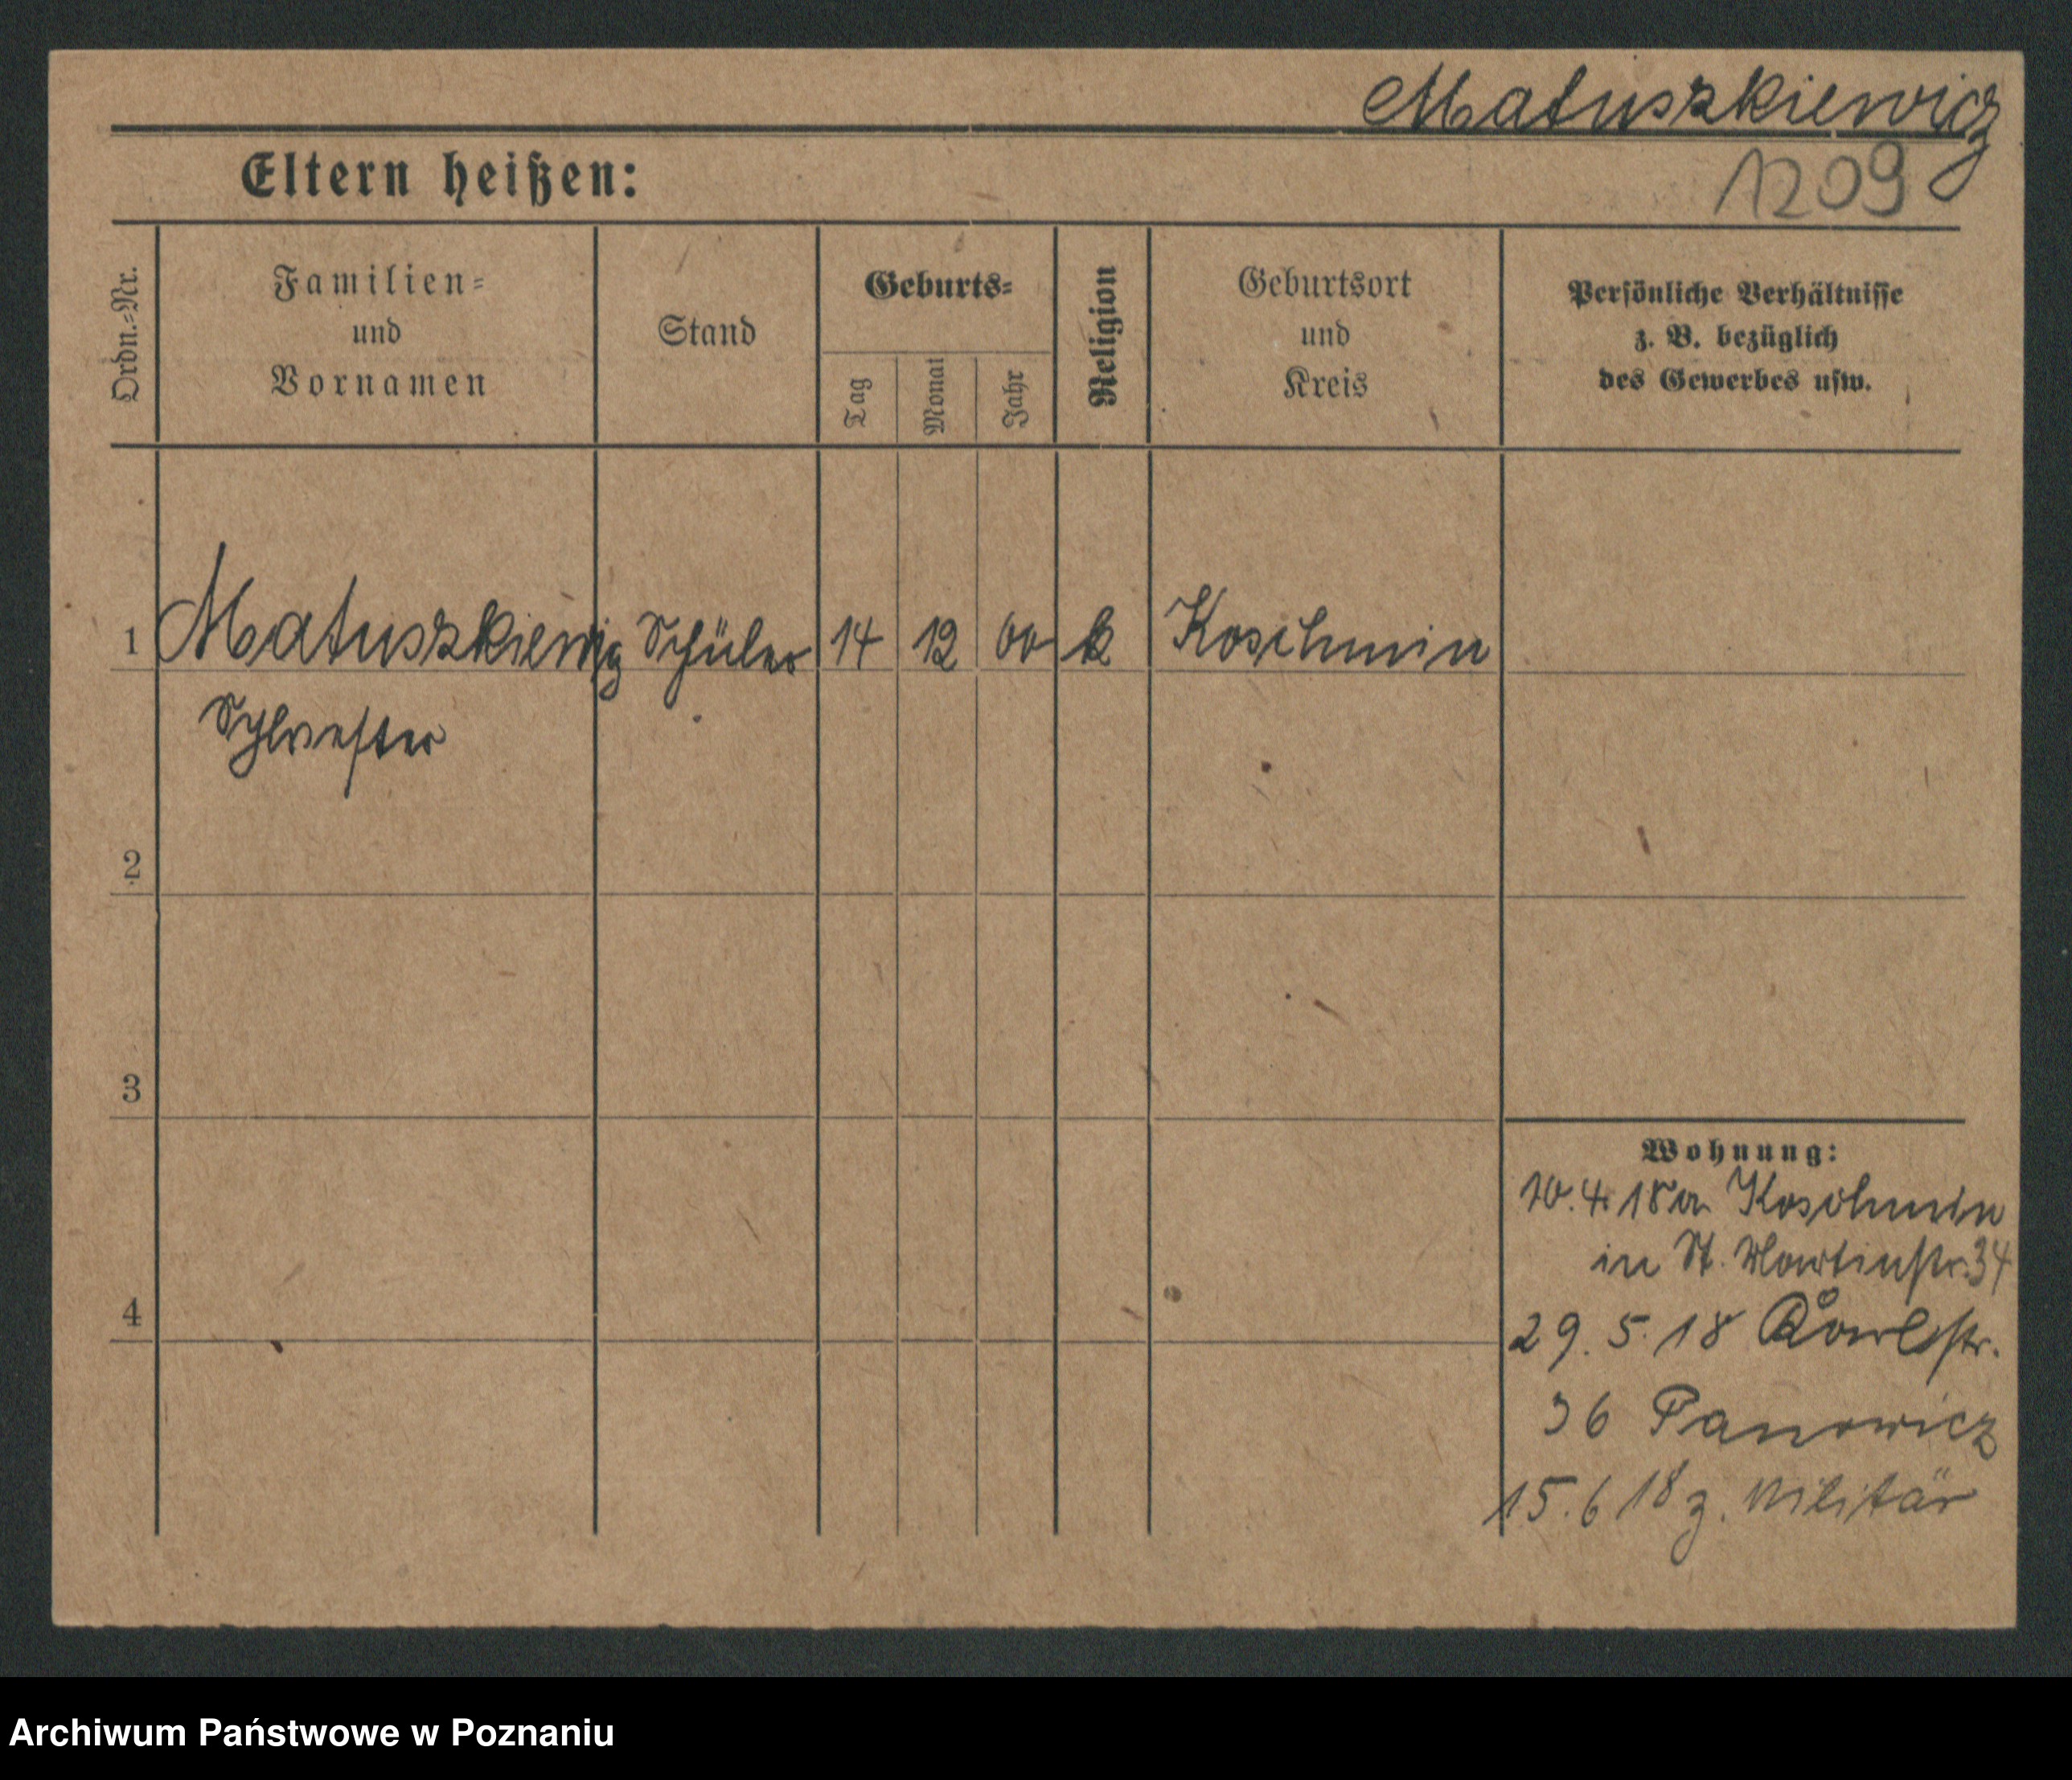 Matuszkiewicz
Eltern heißen:
1209
Ordn.-Nr.
Familien-
und
Vornamen
Stand
Geburts-
Tag
Monat
Jahr
Religion
Geburtsort
und
Kreis
Persönliche Verhältnisse
z. B. bezüglich
des Gewerbes usw.
1 Matuszkiewicz Schüler 14 12 00 k Koschmin
Sylvester
2
3
4
Wohnung:
10.4.18 a Koschmin
in St. Martinstr. 34
29.5.18 Karlstr.
36 Panowicz
15.6 18 z. Militär
Archiwum Państwowe w Poznaniu